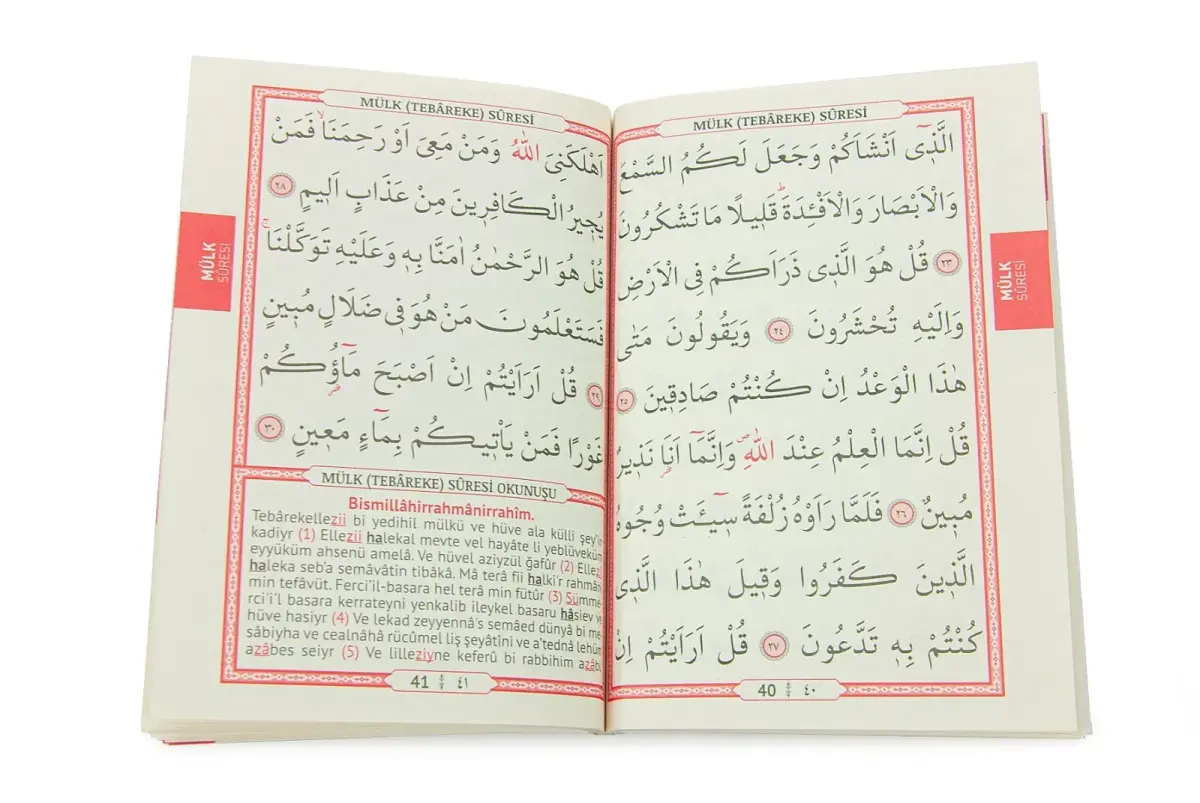 MÜLK (TEBÂREKE) SÛRESİ
اَلَّذ۪ٓى اَنْشَاَكُمْ وَجَعَلَ لَكُمُ السَّمْعَ
وَالْاَبْصَارَ وَالْاَفْـِٔدَةَۜ قَل۪يلًا مَا تَشْكُرُونَ
﴿٢٣﴾ قُلْ هُوَ الَّذ۪ى ذَرَاَكُمْ فِى الْاَرْضِ
وَاِلَيْهِ تُحْشَرُونَ ﴿٢٤﴾ وَيَقُولُونَ مَتٰى
هٰذَا الْوَعْدُ اِنْ كُنْتُمْ صَادِق۪ينَ ﴿٢٥﴾
قُلْ اِنَّمَا الْعِلْمُ عِنْدَ اللّٰهِۖ وَاِنَّمَٓا اَنَا۬ نَذ۪يرٌ
مُب۪ينٌ ﴿٢٦﴾ فَلَمَّا رَاَوْهُ زُلْفَةً س۪ٓيـَٔتْ وُجُوهُ
الَّذ۪ينَ كَفَرُوا وَق۪يلَ هٰذَا الَّذ۪ى
كُنْتُمْ بِه۪ تَدَّعُونَ ﴿٢٧﴾ قُلْ اَرَاَيْتُمْ اِنْ
40 ٤٠
MÜLK SÛRESİ
MÜLK (TEBÂREKE) SÛRESİ
اَهْلَكَنِىَ اللّٰهُ وَمَنْ مَعِىَ اَوْ رَحِمَنَاۙ فَمَنْ
يُج۪يرُ الْكَافِر۪ينَ مِنْ عَذَابٍ اَل۪يمٍ ﴿٢٨﴾
قُلْ هُوَ الرَّحْمٰنُ اٰمَنَّا بِه۪ وَعَلَيْهِ تَوَكَّلْنَاۚ
فَسَتَعْلَمُونَ مَنْ هُوَ ف۪ى ضَلَالٍ مُب۪ينٍ
﴿٢٩﴾ قُلْ اَرَاَيْتُمْ اِنْ اَصْبَحَ مَٓاؤُ۬كُمْ
غَوْرًا فَمَنْ يَاْت۪يكُمْ بِمَٓاءٍ مَع۪ينٍ ﴿٣٠﴾
MÜLK (TEBÂREKE) SÛRESİ OKUNUŞU
Bismillâhirrahmânirrahîm.
Tebârekellezii bi yedihil mülkü ve hüve ala külli şey'in
kadiyr (1) Ellezii halekal mevte vel hayâte li yeblüveküm
eyyüküm ahsenü amelâ. Ve hüvel aziyzül ğafûr (2)
haleka seb'a semâvâtin tibâkâ. Mâ terâ fii halki'r rahmân
min tefâvüt. Ferci'il-basara hel terâ min fütûr (3) Sümme
rci'i'l basara kerrateyni yenkalib ileykel basaru hâsiev
hüve hasiyr (4) Ve lekad zeyyennâ's semâed dünyâ bi me
sâbiyha ve cealnâhâ rücûmel liş şeyâtîni ve a'tednâ lehüm
azâbes seiyr (5) Ve lilleziyne keferû bi rabbihim
41 ٤١
MÜLK SÛRESİ